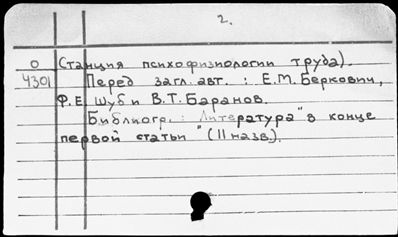 2.
О Станция психофизиологии труда).
4301 Перед загл. авт. : Е.М. Беркович,
Ф.Е. Шуб и В.Т. Баранов.
Библиогр. : "Литература" в конце
первой статьи " (11 назв.).